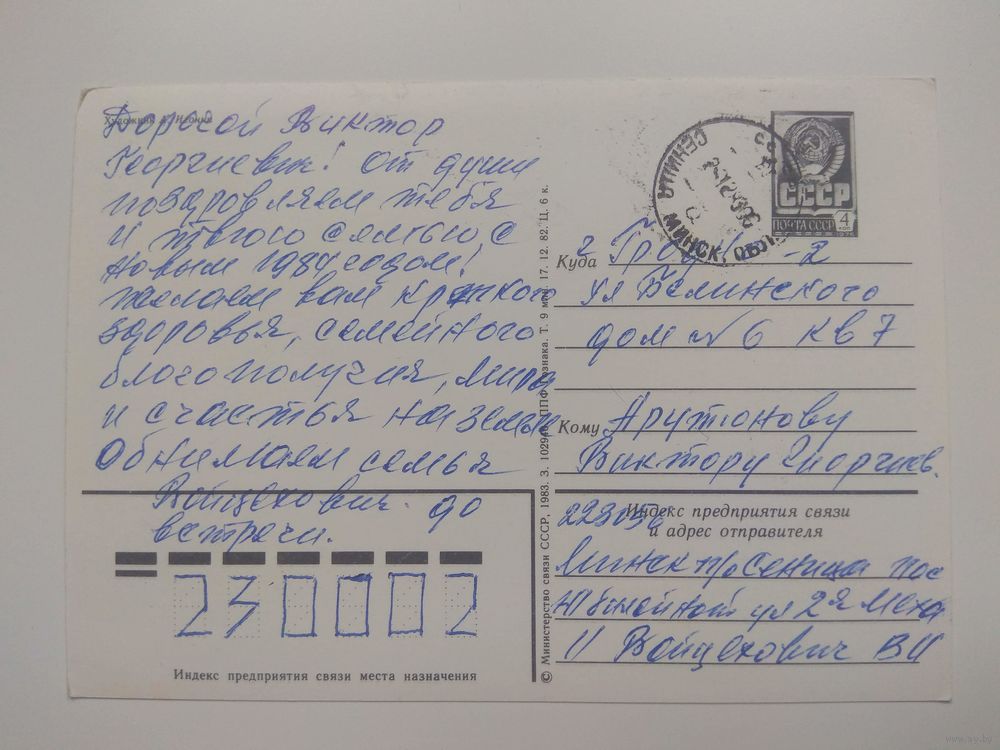 Художник А.
Дорогой Виктор
Георгиевич! От души
поздравляем тебя
и твою семью, с
Новым 1984 годом!
Желаем вам крепкого
здоровья, семейного
благополучия, мира
и счастья на земле
Обнимаем семья
Войцехович. до
встречи.
230002
Индекс предприятия связи места назначения
© Министерство связи СССР, 1983. З. 10294 ППФ Гознака. Т. 9 млн. 17. 12. 82. Ц. 6 к.
СЕНИЦА
МИНСК. ОБЛ.
СССР
ПОЧТА СССР
4
КОП
1976
Куда г -2
ул Белинского
дом № 6 кв 7
Кому Арутюнову
Виктору Георгиев.
Индекс предприятия связи
и адрес отправителя
223056
Минск п/о Сеница пос
Юбилейной ул 2я
11 Войцехович ВИ
www.ay.by